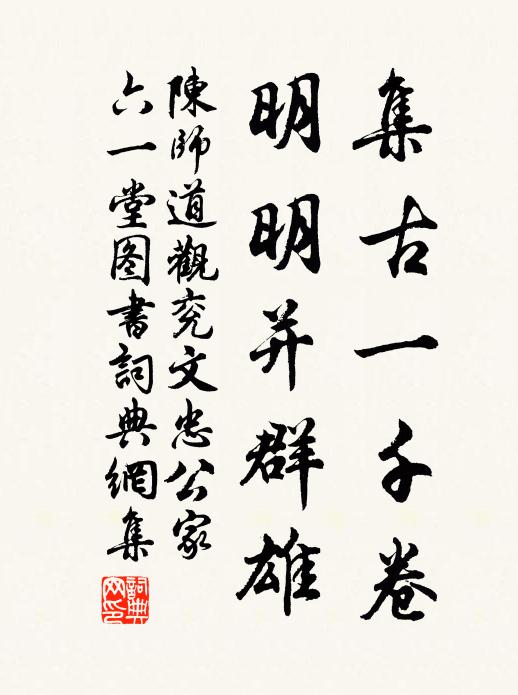 集古一千卷
明明并群雄
陳師道觀兖文忠公家
六一堂图書詞典網集
詞典
网印